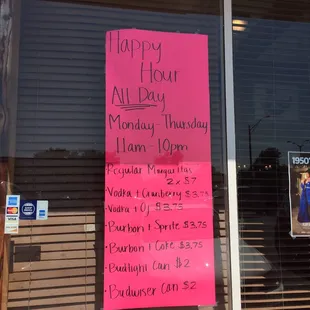 Happy
Hour
All Day
Monday-Thursday
11am-10pm
Regular Margaritas
2 x $7
Vodka + Cranberry $3.75
• Vodka + OJ $3.75
• Burbon + Sprite $3.75
• Burbon + Coke $3.75
• Budlight Can $2
• Budwiser Can $2
1950's
VISA